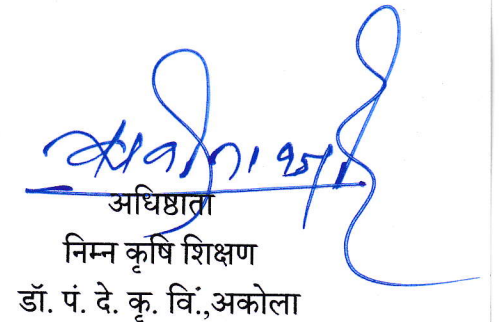 अधिष्ठाता
निम्न कृषि शिक्षण
डॉ. पं. दे. कृ. विं.,अकोला